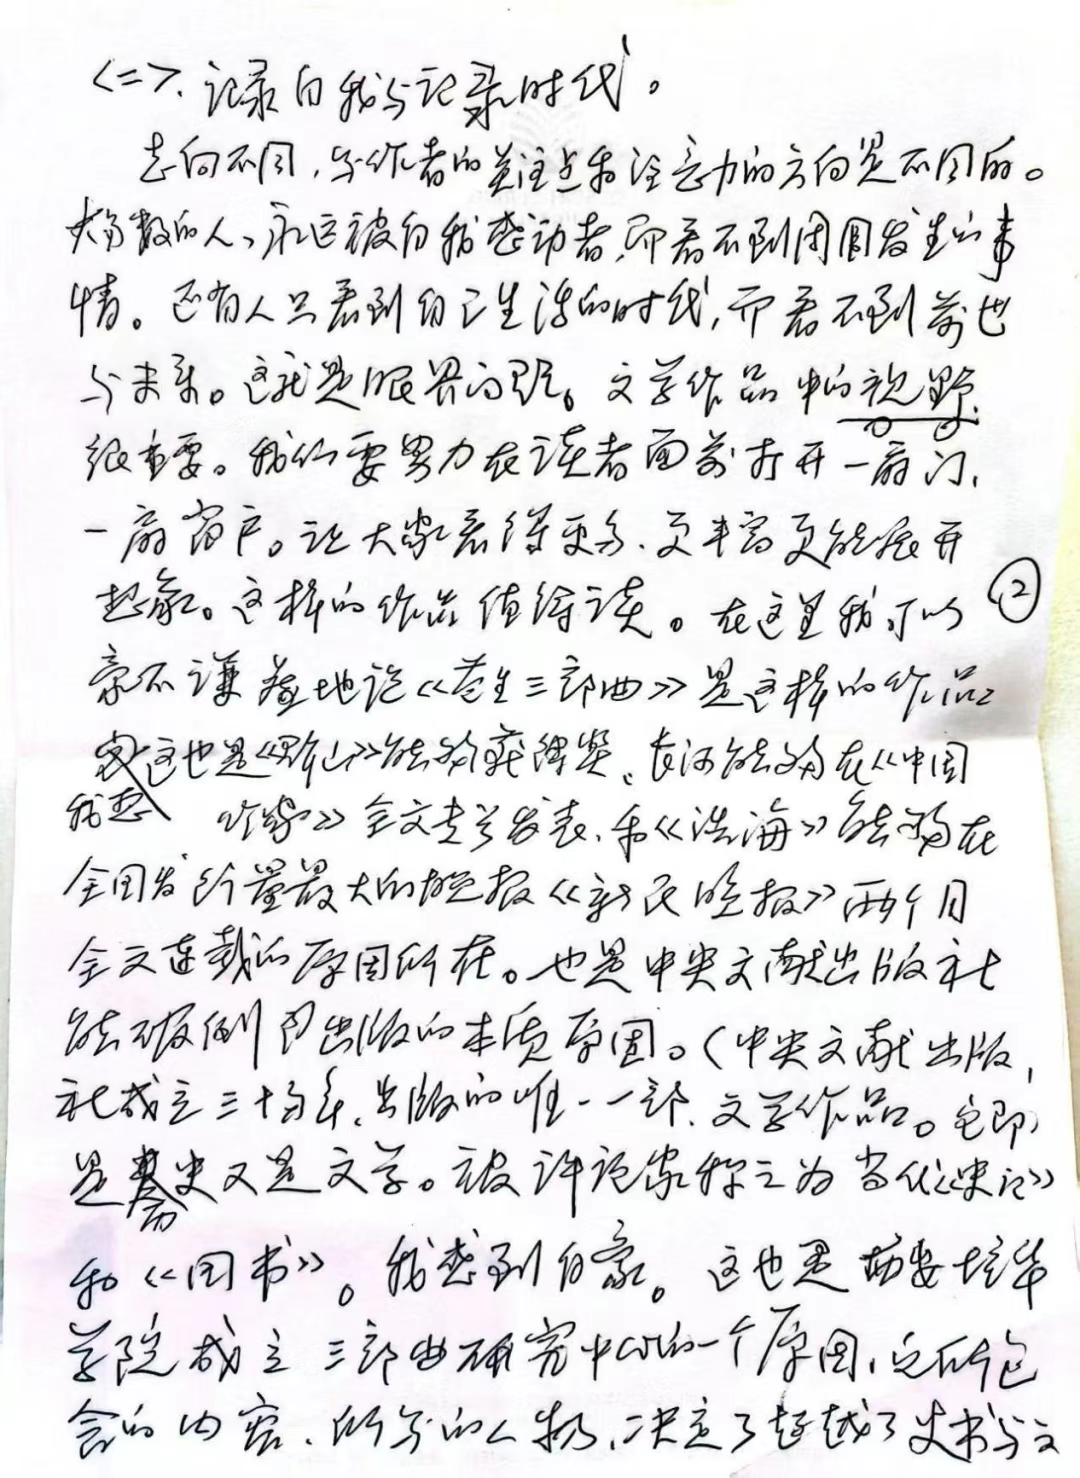 <二>、记录自我与记录时代。
志向不同,写作者的关注点和注意力的方向是不同的。
大多数的人,永远被自我感动着,而看不到周围发生的事
情。还有人只看到自己生活的时代,而看不到前世
与未来。这就是眼界问题。文学作品中的视野
很重要。我们要努力在读者面前打开一扇门,
一扇窗户。让大家看得更多、更丰富更能展开
想象。这样的作品值得读。在这里我可以
毫不谦虚地说《苍生三部曲》是这样的作品
这也是《野山》能够获得奖、长河能够在《中国
我想 作家》全文专号发表、和《浩海》能够在
全国发行量最大的晚报《新民晚报》两个月
全文连载的原因所在。也是中央文献出版社
能破例印出版的本质原因。(中央文献出版,
社成立三十多年,出版的唯一一部文学作品。它即
是史又是文学。被评论家称之为当代《史记》
和《国书》。我感到自豪。这也是西安培华
学院成立三部曲研究中心的一个原因,它所包
含的内容、所写的人物,决定了超越了史书与文